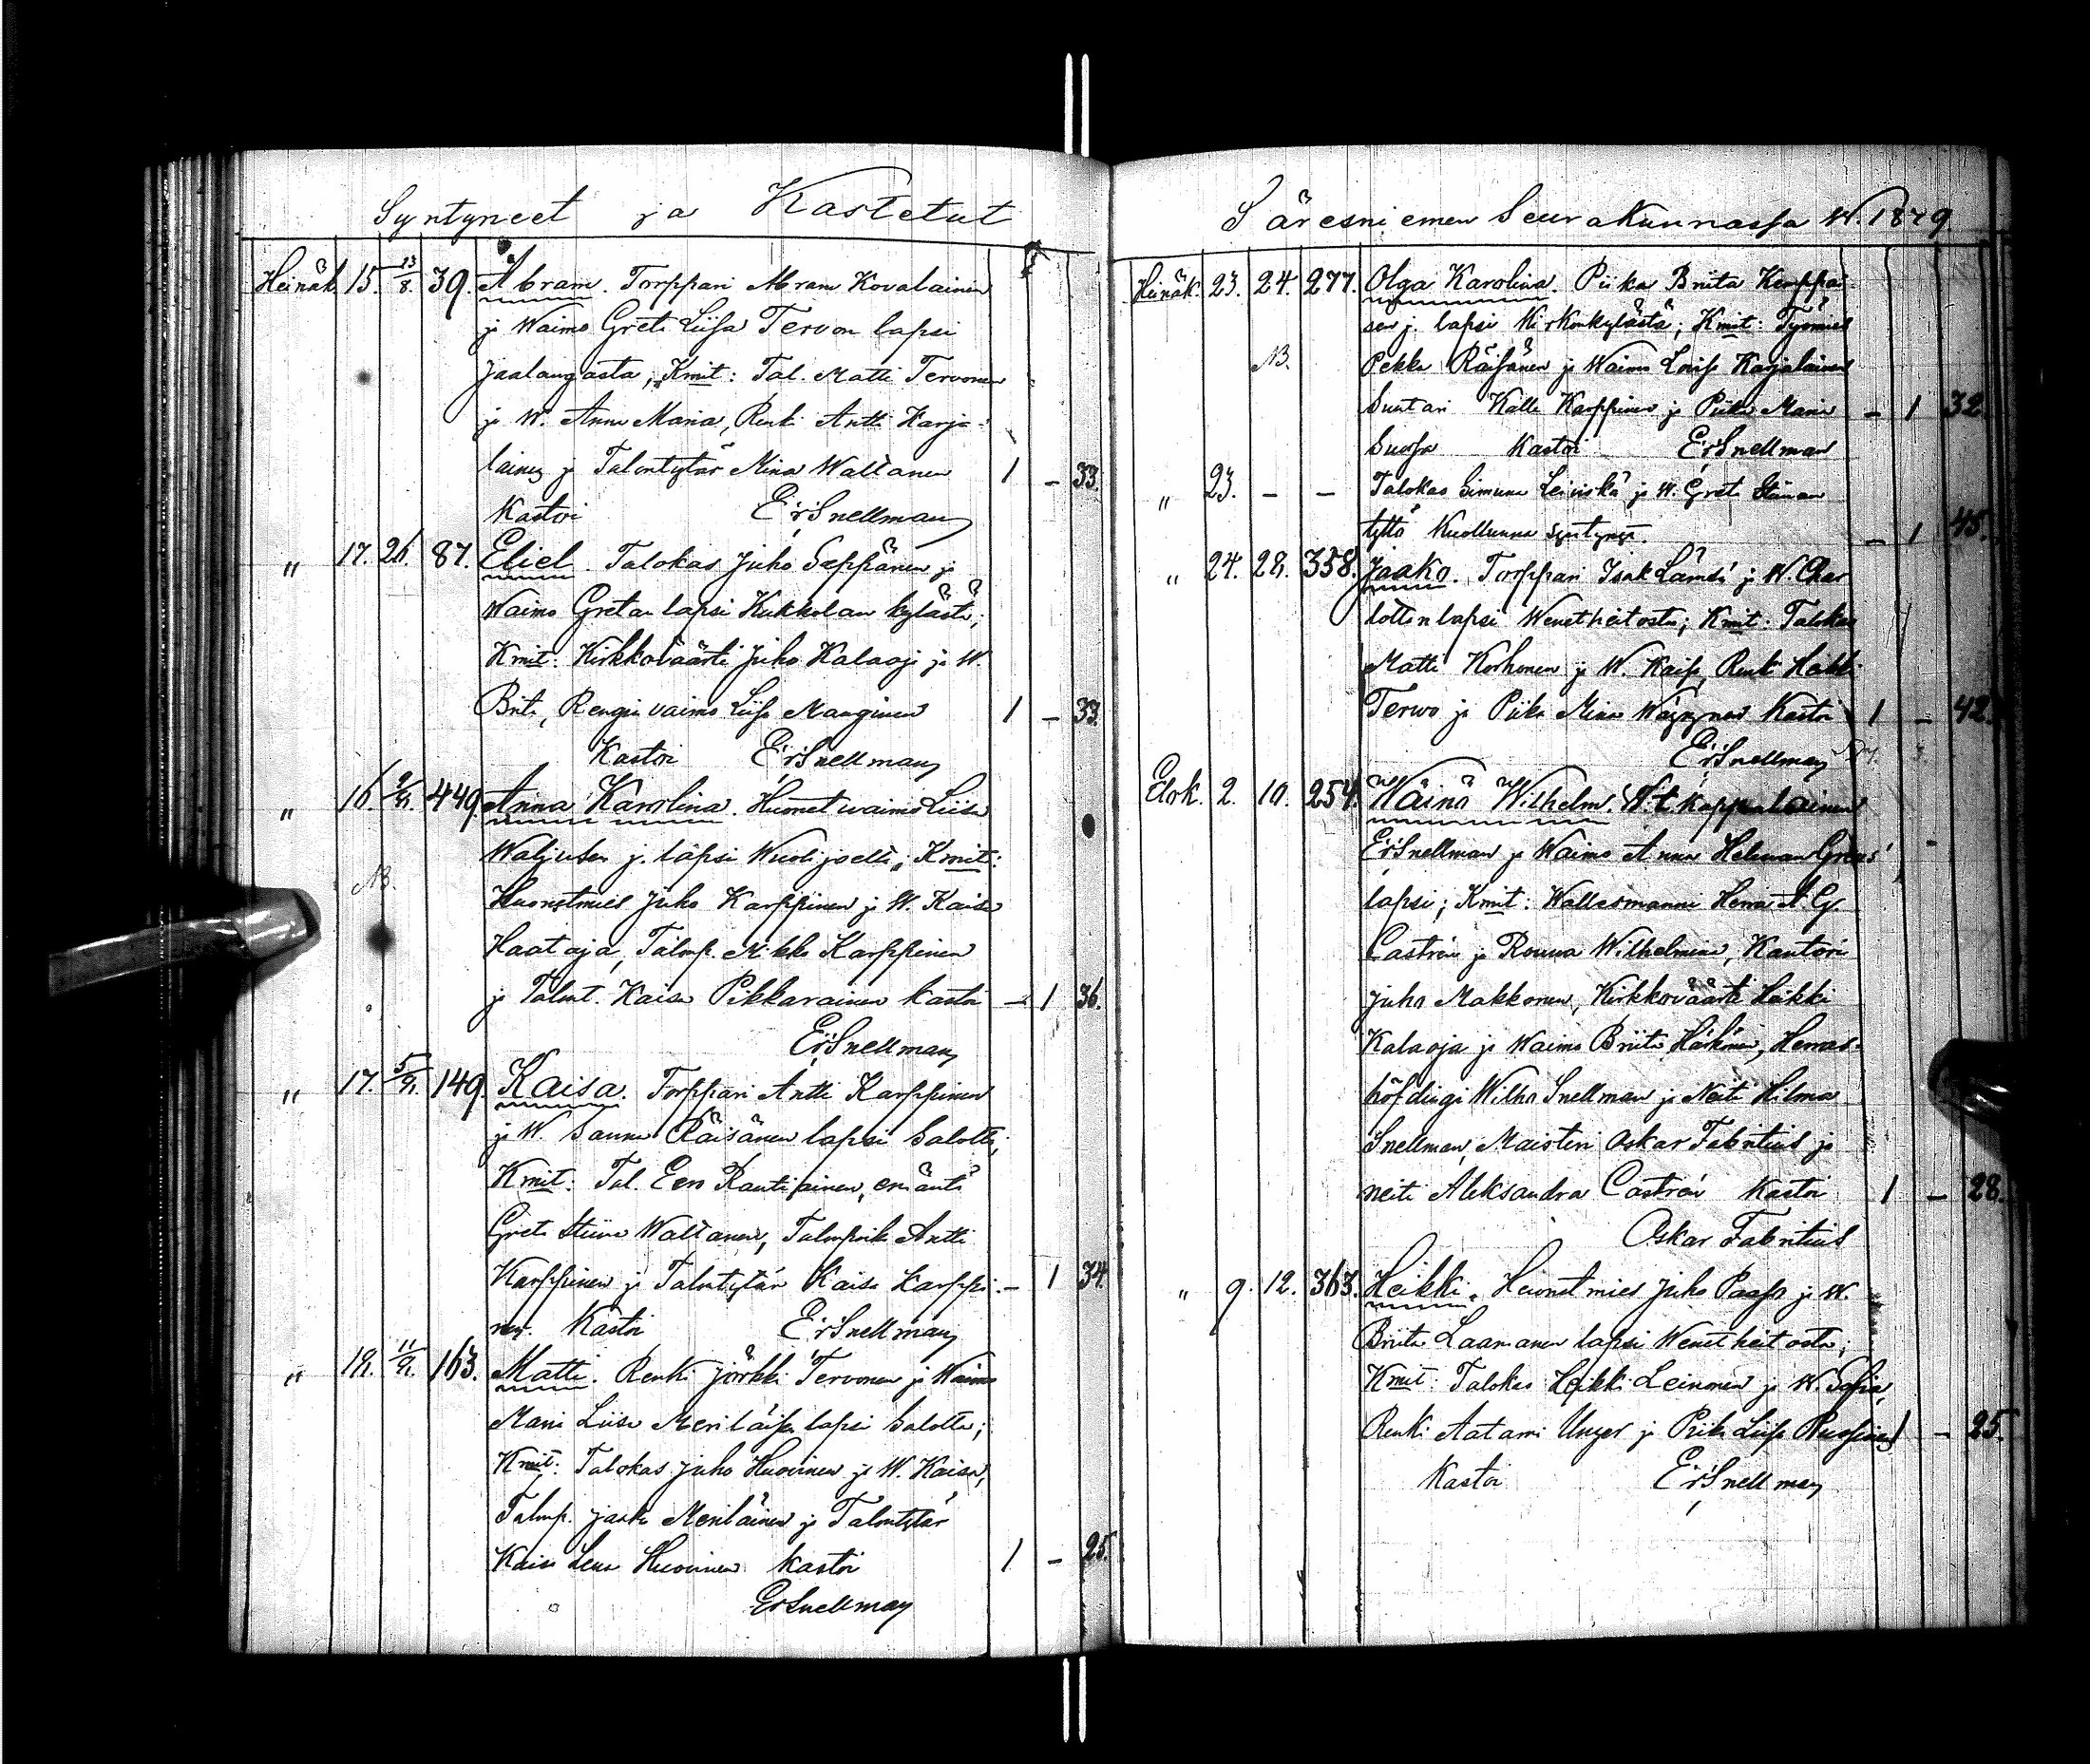 Syntyneet ja Kastetut
Heinäk. 15. 23/8. 39. Abram. Torppari Abram Kovalainen
ja Waimo Greta Liisa Tervon lapsi
Jaalangasta, Kmit: Tal. Matti Tervonen
ja W. Anna Maria, Renki Antti Karja-
lainen ja Talontytär Mina Waltanen 1 – 33.
Kastoi Er Snellman
" 17. 26. 87. Eliel. Talokas Juho Seppänen ja
Waimo Gretan lapsi Kukkolan kylästä;
Kmit: Kirkkoväärti Juho Kalaoja ja W.
Brita, Rengin vaimo Liisa Manginen 1 – 33.
Kastoi Er Snellman
" 16. 449. Anna Karolina. Huonet waimo Liisa
Waljusen j. lapsi Wuolijoelta, Kmit:
NB.
Huonetmies Juho Karppinen ja W. Kaisa
Haataja, Talonp. Mikko Karppinen
ja Talont. Kaisa Pikkarainen kastoi – 1 36.
Er Snellman
" 17. 149. Kaisa. Torppari Antti Karppinen
ja W. Sanna Räisänen lapsi Salolta,
Kmit: Tal. Eero Rautiainen, emäntä
Greta Stiina Waltanen, Talonpoik Antti
Karppinen ja Talontytär Kaisa Karppi- – 1 34.
nen. Kastoi Er Snellman
" 18. 163. Matti. Renki Jörkki Tervonen ja Waimo
Maria Liisa Meriläisen lapsi Salolta;
Kmit: Talokas Juho Huovinen ja W. Kaisa,
Talonp. Jaako Meriläinen ja Talontytär
Kaisa Lena Huovinen kastoi 1 – 25.
Er Snellman
Säresniemen Seurakunnassa W. 1879.
Heinäk. 23. 24. 277. Olga Karolina. Piika Briita Karppai-
sen j. lapsi Kirkonkylästä; Kmit: Työmies
NB. Pekka Räisänen ja Waimo Lovisa Karjalainen
Suntari Kalle Karppinen ja Piika Maria – 1 32
Suossa Kastoi Er Snellman
" 23. – – Talokas Simuna Leiviskä ja W. Greta
tyttö Kuolluna syntynyt. – 1 45.
" 24. 28. 358. Jaako. Torppari Isak Lämsä ja W. Char
lottan lapsi Wenetheitosta; Kmit: Talokas
Matti Korhonen ja W. Kaisa, Renki
Terwo ja Piika Mina Wäyrynen Kastoi 1 – 42.
Er Snellman
Elok. 2. 10. 254. Wäinö Wilhelm. W. t. Kappalainen
Er Snellman ja Waimo Anna Helenan
lapsi; Kmit: Wallesmanni Herra A. G.
Castrén ja Rouwa Wilhelmina, Kantori
Juho Makkonen, Kirkkoväärti Heikki
Kalaoja ja Waimo Briita Härkönen, Herras-
höfdingi Wilho Snellman ja Neiti Hilma
Snellman, Maisteri Oskar Fabritius ja
neiti Aleksandra Castrén Kastoi 1 – 28.
Oskar Fabritius
" 9. 12. 363. Heikki. Huonetmies Juho Paaso ja W.
Briita Laamanen lapsi Wenetheitosta;
Kmit: Talokas Heikki Leinonen ja W. Sofia,
Renki Aatami Unger ja Piika Liisa 1 – 25.
Kastoi Er Snellman